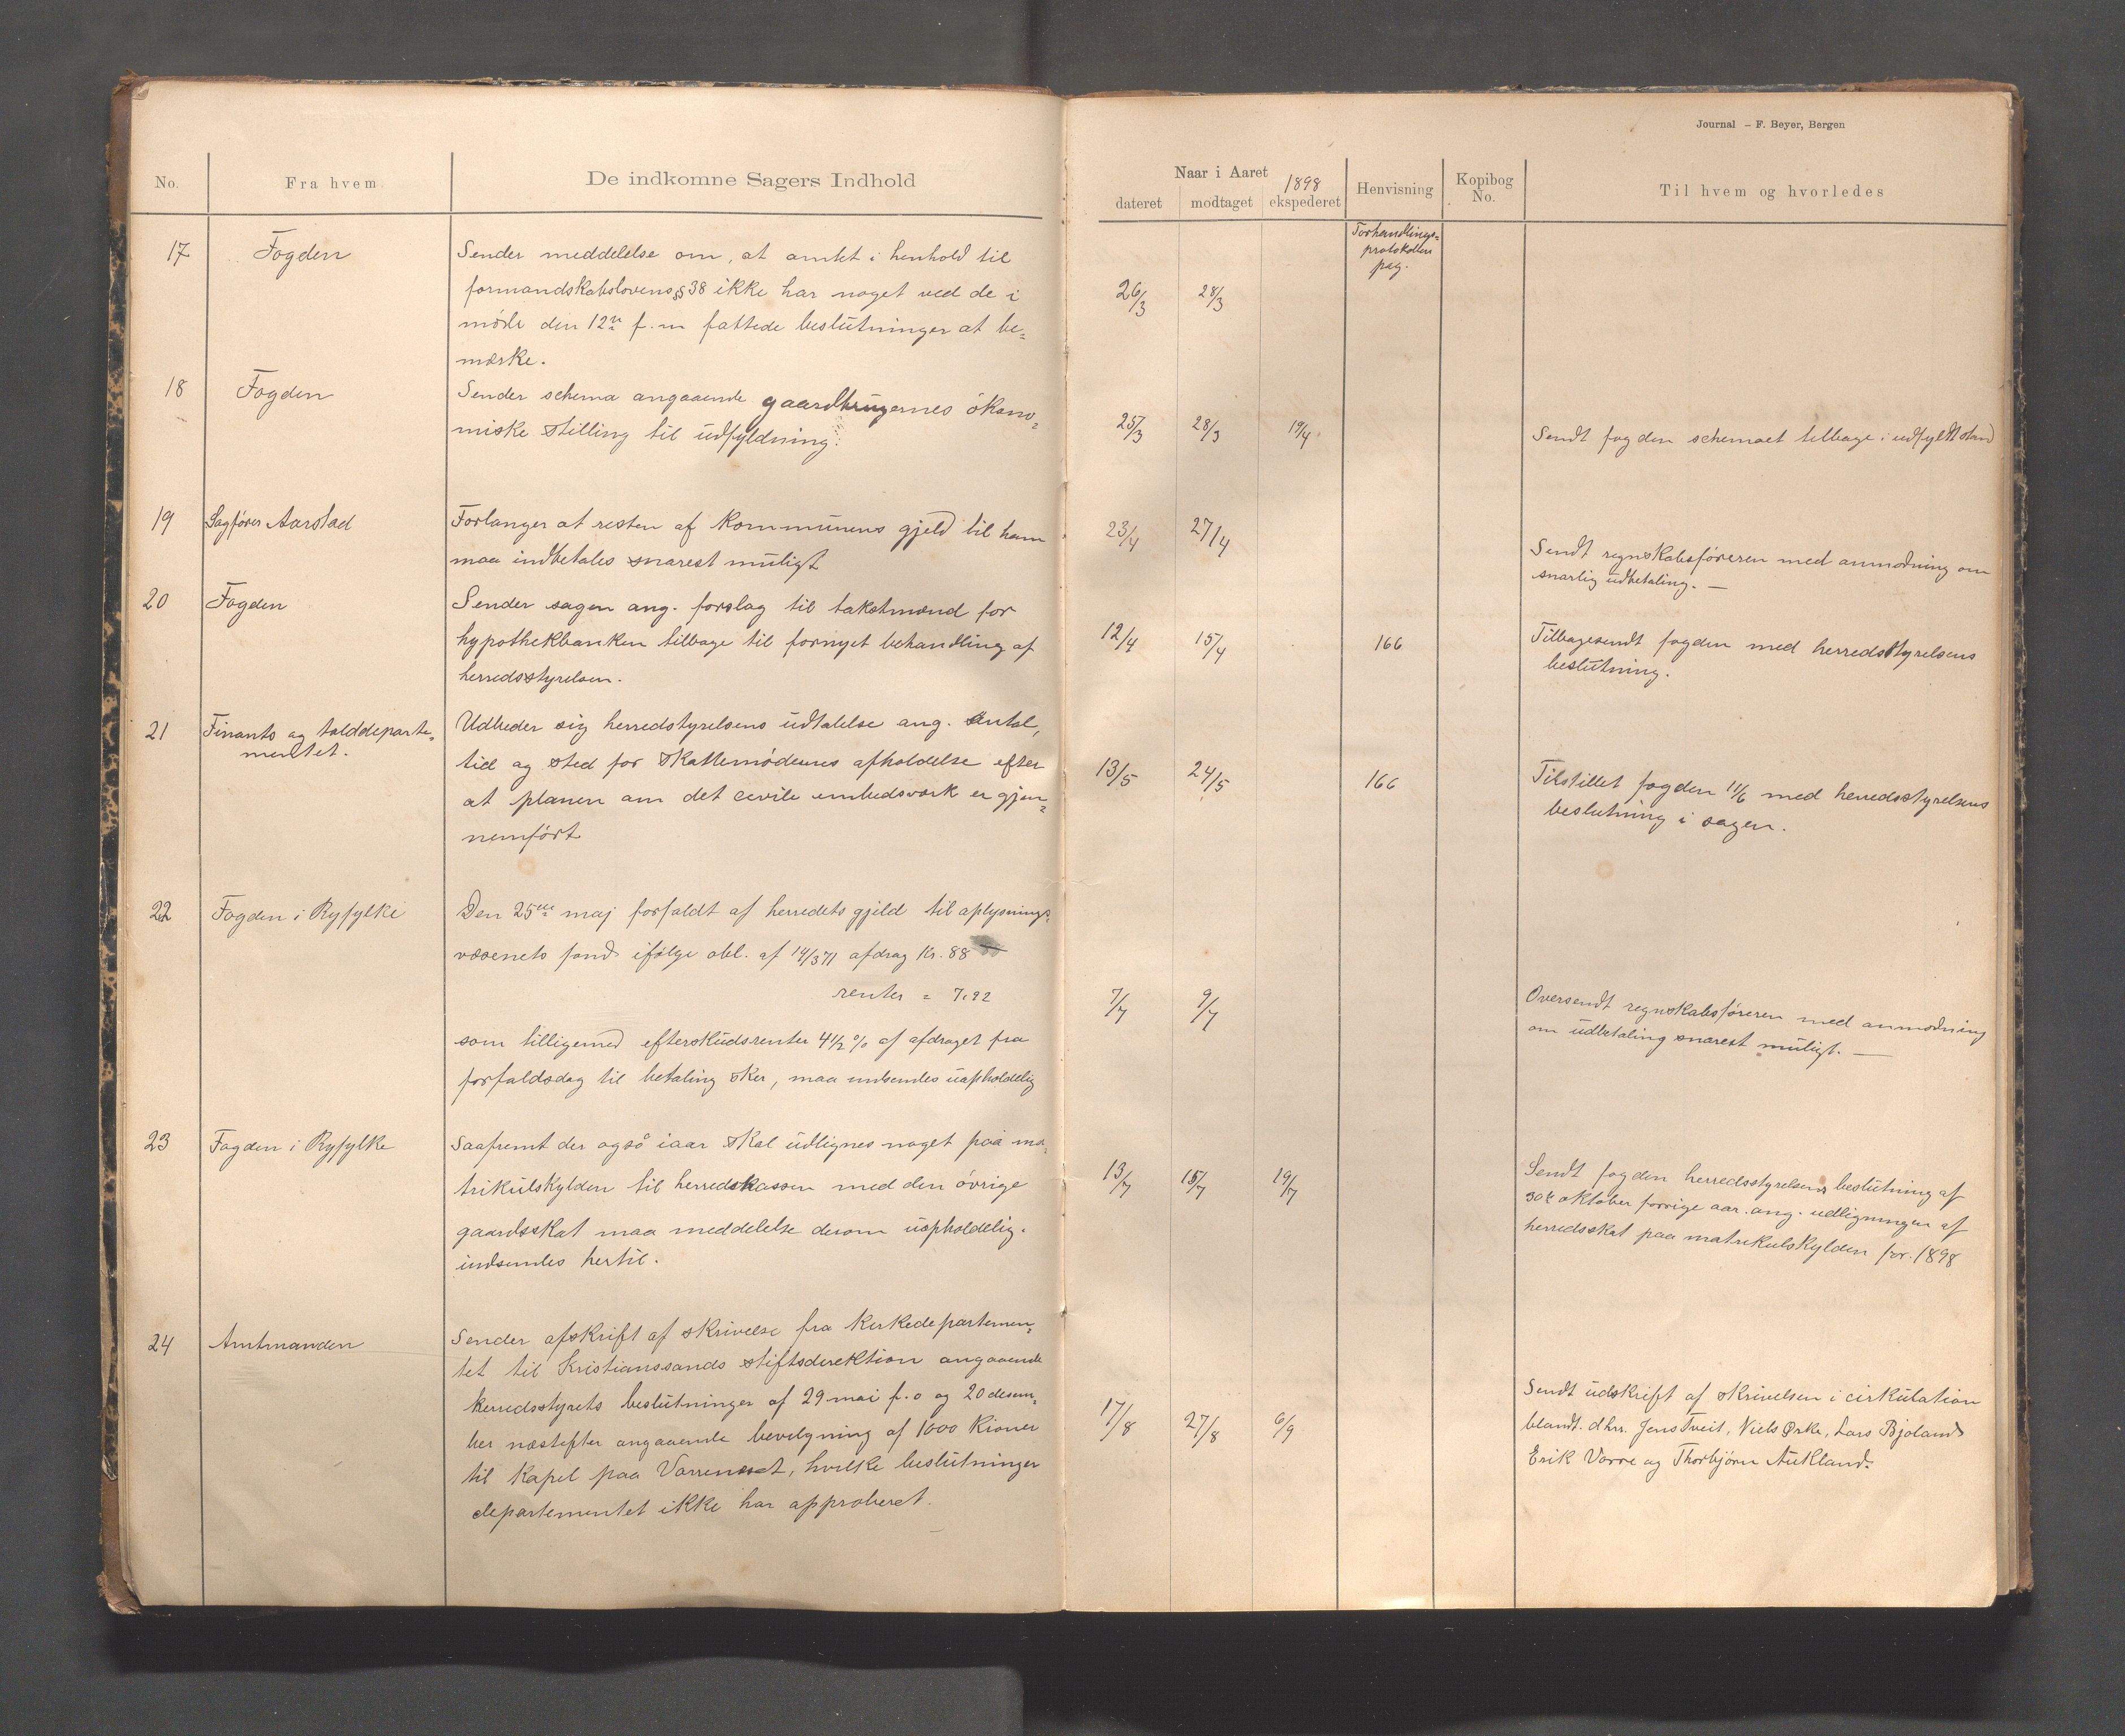 Journal – F. Beyer, Bergen
No.
Fra hvem
De indkomne Sagers Indhold
Naar i Aaret 1898
dateret
modtaget
ekspederet
Henvisning
Kopibog No.
Til hvem og hvorledes
Forhandlings=
protokollen
pag.
17 Fogden
Sender meddelelse om, at amtet i henhold til
formandskabslovens § 38 ikke har noget ved de i
møde den 12te f. m fattede beslutninger at be=
mærke.
26/3 28/3
18 Fogden
Sender schema angaaende gaardbrugernes økono=
miske stilling til udfyldning.
25/3 28/3 19/4
Sendt fogden schemaet tilbage i udfyldt stand
19 Sagfører Aarstad
Forlanger at resten af kommunens gjeld til ham
maa indbetales snarest muligt
23/4 27/4
Sendt regnskabsføreren med anmodning om
snarlig udbetaling. —
20 Fogden
Sender sagen ang. forslag til takstmænd for
hypothekbanken tilbage til fornyet behandling af
herredsstyrelsen.
12/4 15/4 166
Tilbagesendt fogden med herredsstyrelsens
beslutning.
21 Finants og tolddeparte=
mentet.
Udbeder sig herredstyrelsens udtalelse ang. antal,
tid og sted for skattemødernes afholdelse efter
at planen om det civile embedsværk er gjen=
nemført
13/5 24/5 166
Tilstillet fogden 11/6 med herredsstyrelsens
beslutning i sagen.
22 Fogden i Ryfylke
Den 25de maj forfaldt af herredets gjeld til oplysnings=
væsenets fond ifølge obl. af 14/3 71 afdrag Kr. 88 —
renter = 7.92
som tilligemed efterskudsrenter 4 1/2 % af afdraget fra
forfaldsdag til betaling sker, maa indsendes uopholdelig
7/7 9/7
Oversendt regnskabsføreren med anmodning
om udbetaling snarest muligt. —
23 Fogden i Ryfylke
Saafremt der også iaar skal udlignes noget paa ma=
trikulskylden til herredskassen med den øvrige
gaardsskat maa meddelelse derom uopholdelig.
indsendes hertil.
13/7 15/7 19/7
Sendt fogden herredsstyrelsens beslutning af
30te oktober forrige aar. ang. udligningen af
herredsskat paa matrikulskylden for. 1898
24 Amtmanden
Sender afskrift af skrivelse fra kirkedepartemen=
tet til Kristianssands stiftsdirektion angaaende
herredsstyrets beslutninger af 29 mai f. o og 20 desem=
ber næstefter angaaende bevilgning af 1000 kroner
til kapel paa, hvilke beslutninger
departementet ikke har approberet.
17/8 27/8 6/9
Sendt udskrift af skrivelsen i cirkulation
blandt. dhrr. Jens Tveit, Niels Ørke, Lars Bjoland
Erik Vorre og Thorbjørn Aukland.